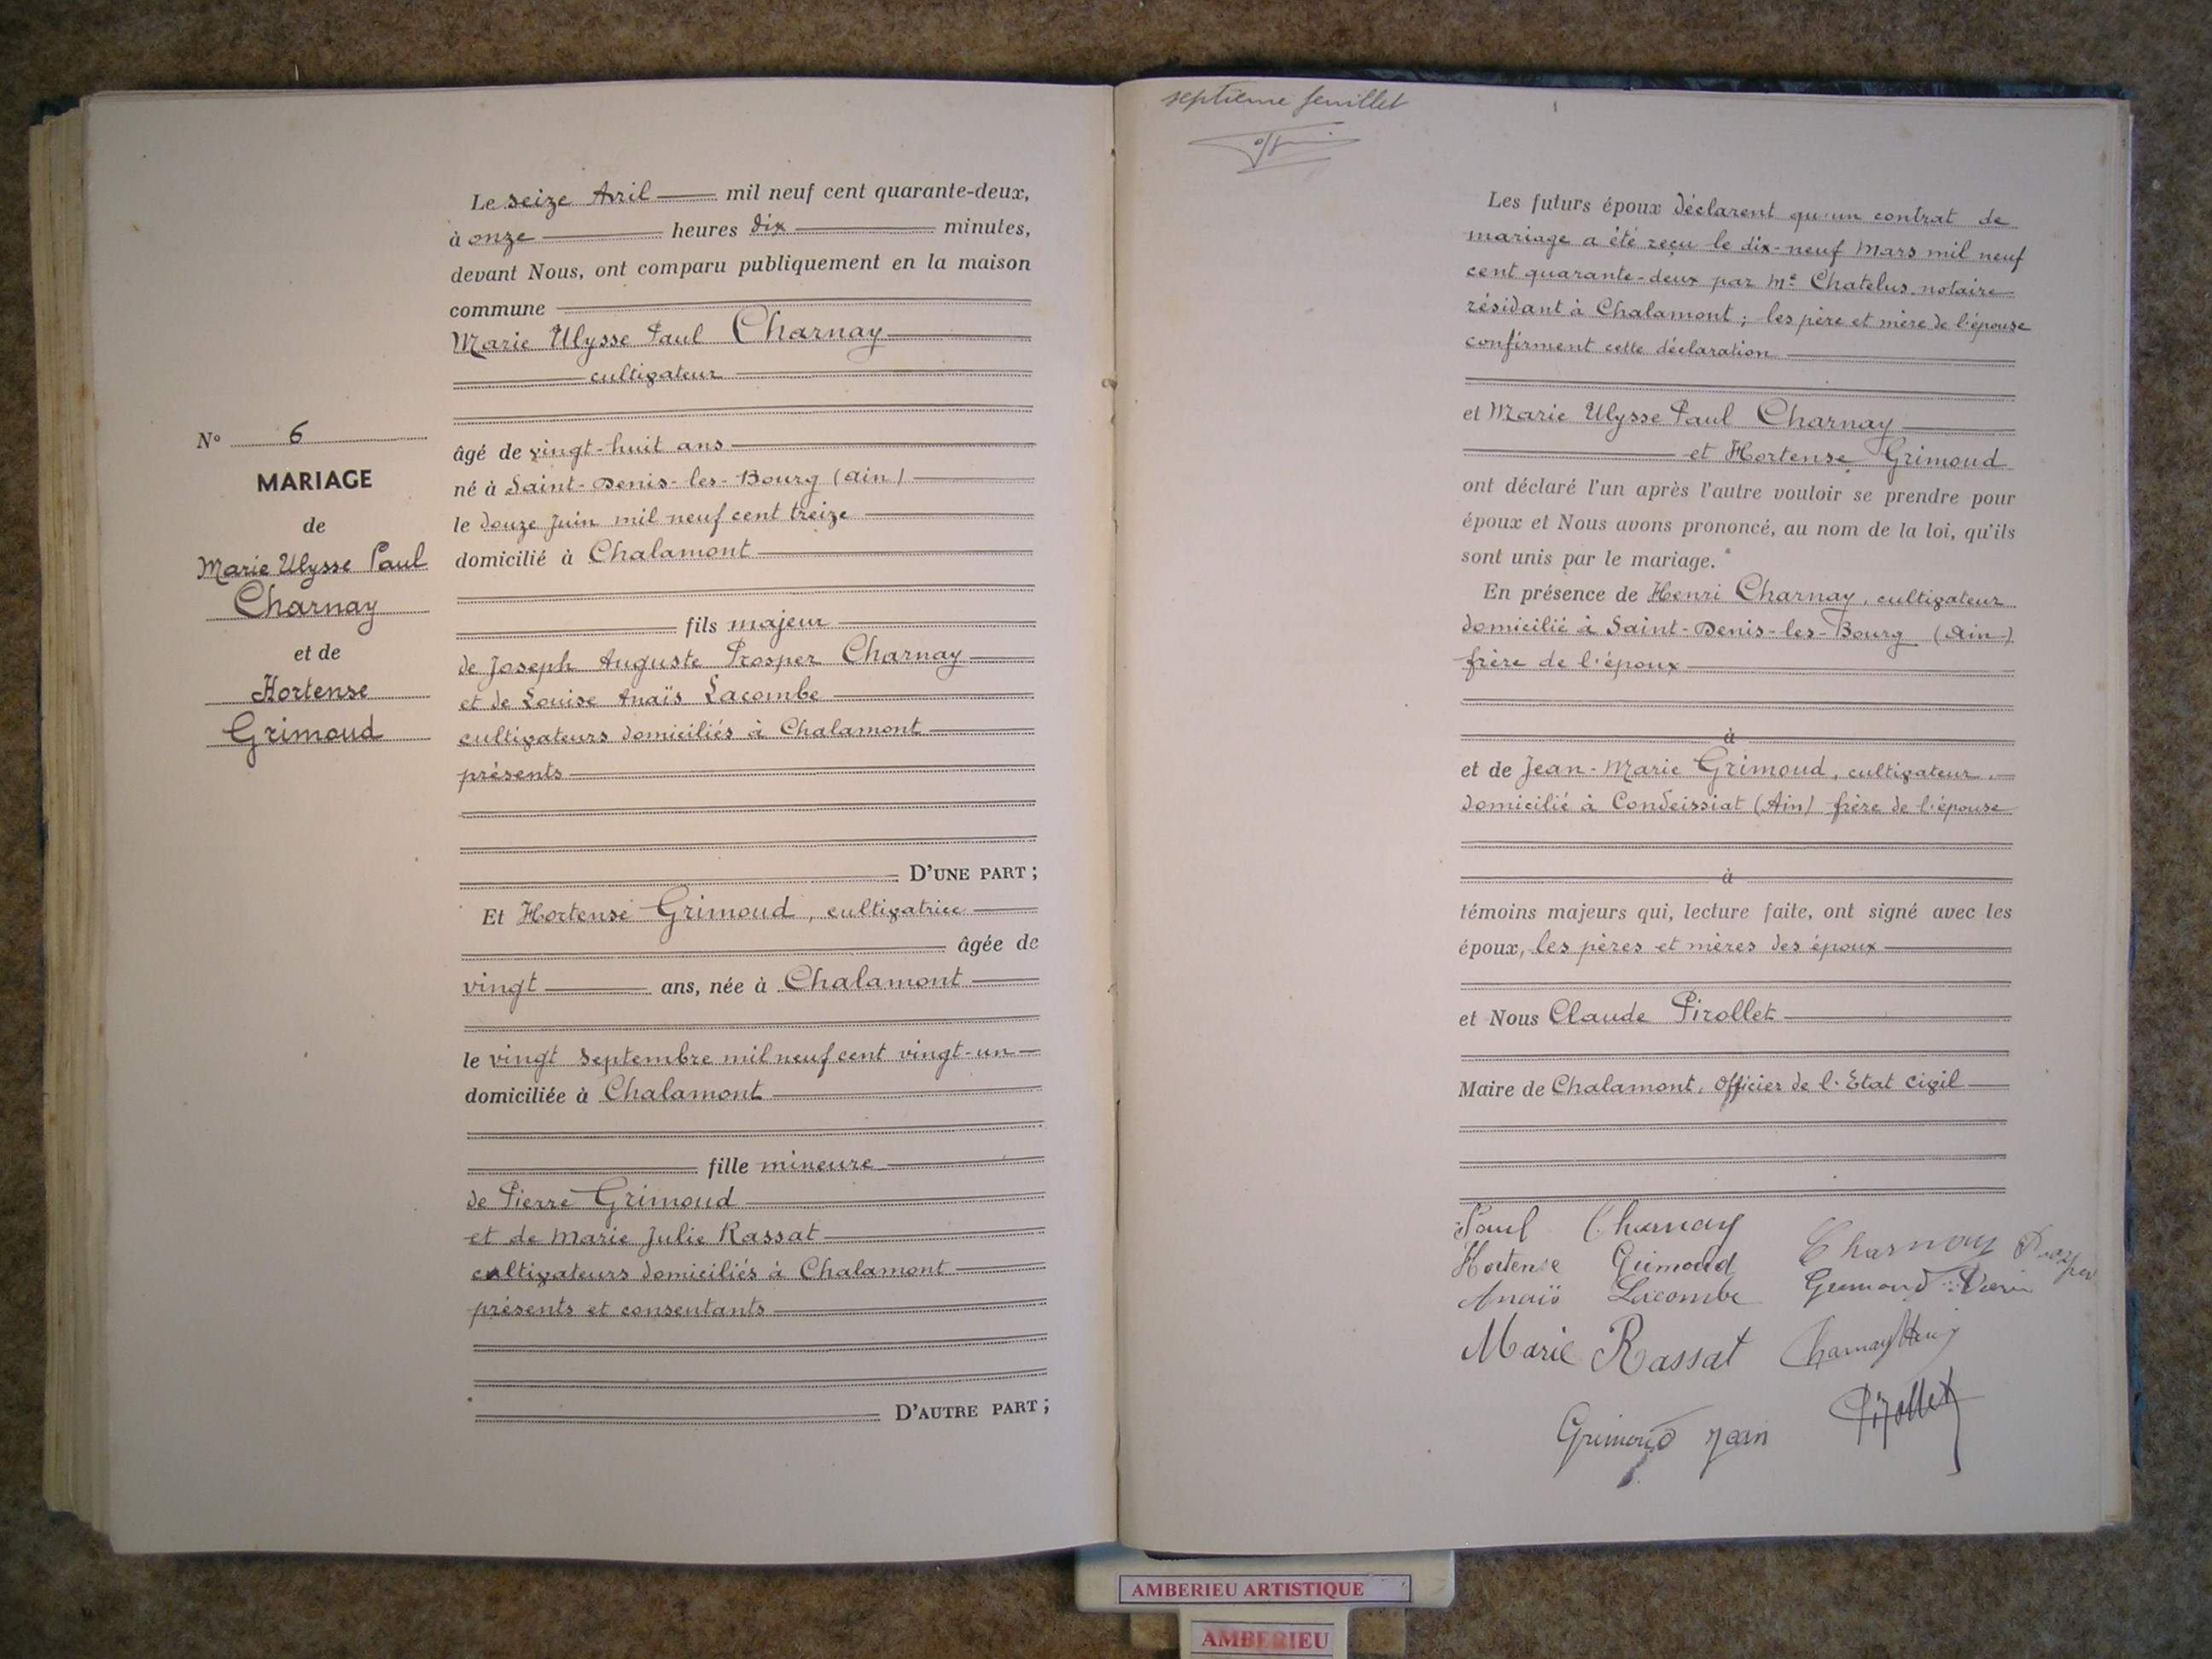 N° 6
MARIAGE
de
Marie Ulysse Paul
Charnay
et de
Hortense
Grimoud
Le seize Avril mil neuf cent quarante-deux,
à onze heures dix minutes,
devant Nous, ont comparu publiquement en la maison
commune
Marie Ulysse Paul Charnay
cultivateur
âgé de vingt-huit ans
né à Saint-Denis-les-Bourg (Ain)
le douze Juin mil neuf cent treize
domicilié à Chalamont
fils majeur
de Joseph Auguste Prosper Charnay
et de Louise Anaïs Lacombe
cultivateurs domiciliés à Chalamont
présents
D'UNE PART ;
Et Hortense Grimoud, cultivatrice
âgée de
vingt ans, née à Chalamont
le vingt Septembre mil neuf cent vingt-un
domiciliée à Chalamont
fille mineure
de Pierre Grimoud
et de Marie Julie Rassat
cultivateurs domiciliés à Chalamont
présents et consentants
D'AUTRE PART ;
septième feuillet
Les futurs époux déclarent qu'un contrat de
mariage a été reçu le dix-neuf Mars mil neuf
cent quarante-deux par Me Chatelus notaire
résidant à Chalamont ; les père et mère de l'épouse
confirment cette déclaration
et Marie Ulysse Paul Charnay
et Hortense Grimoud
ont déclaré l'un après l'autre vouloir se prendre pour
époux et Nous avons prononcé, au nom de la loi, qu'ils
sont unis par le mariage.
En présence de Henri Charnay, cultivateur
domicilié à Saint-Denis-les-Bourg (Ain)
frère de l'époux
à
et de Jean-Marie Grimoud, cultivateur,
domicilié à Condeissiat (Ain) frère de l'épouse
à
témoins majeurs qui, lecture faite, ont signé avec les
époux, les pères et mères des époux
et Nous Claude Pirollet
Maire de Chalamont, Officier de l'Etat Civil
Paul Charnay
Charnay Prosper
Hortense Grimoud
Anaïs Lacombe
Grimoud
Marie Rassat
Charnay Henri
Grimoud Jean
Pirollet
AMBERIEU ARTISTIQUE
AMBERIEU